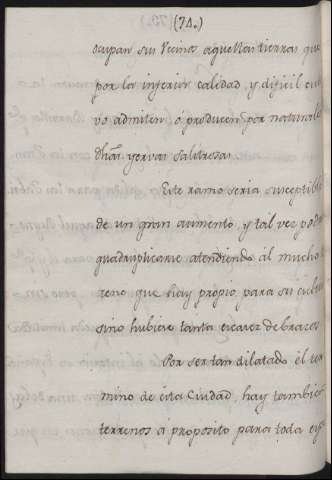 (74.)
cupan sus Vecinos aquellas tierras que
por la inferior calidad, y dificil culti
vo admiten, ó producen por naturale
dhãs yervas Salitrosas
Este ramo seria susceptible
de un gran aumento, y tal vez po
quadruplicarse atendiendo al mucho
reno que hay propio para su cul
sino hubiera tanta escasez de brazos
Por ser tan dilatado el ter
mino de esta Ciudad, hay tambien
terrenos a proposito para toda esp